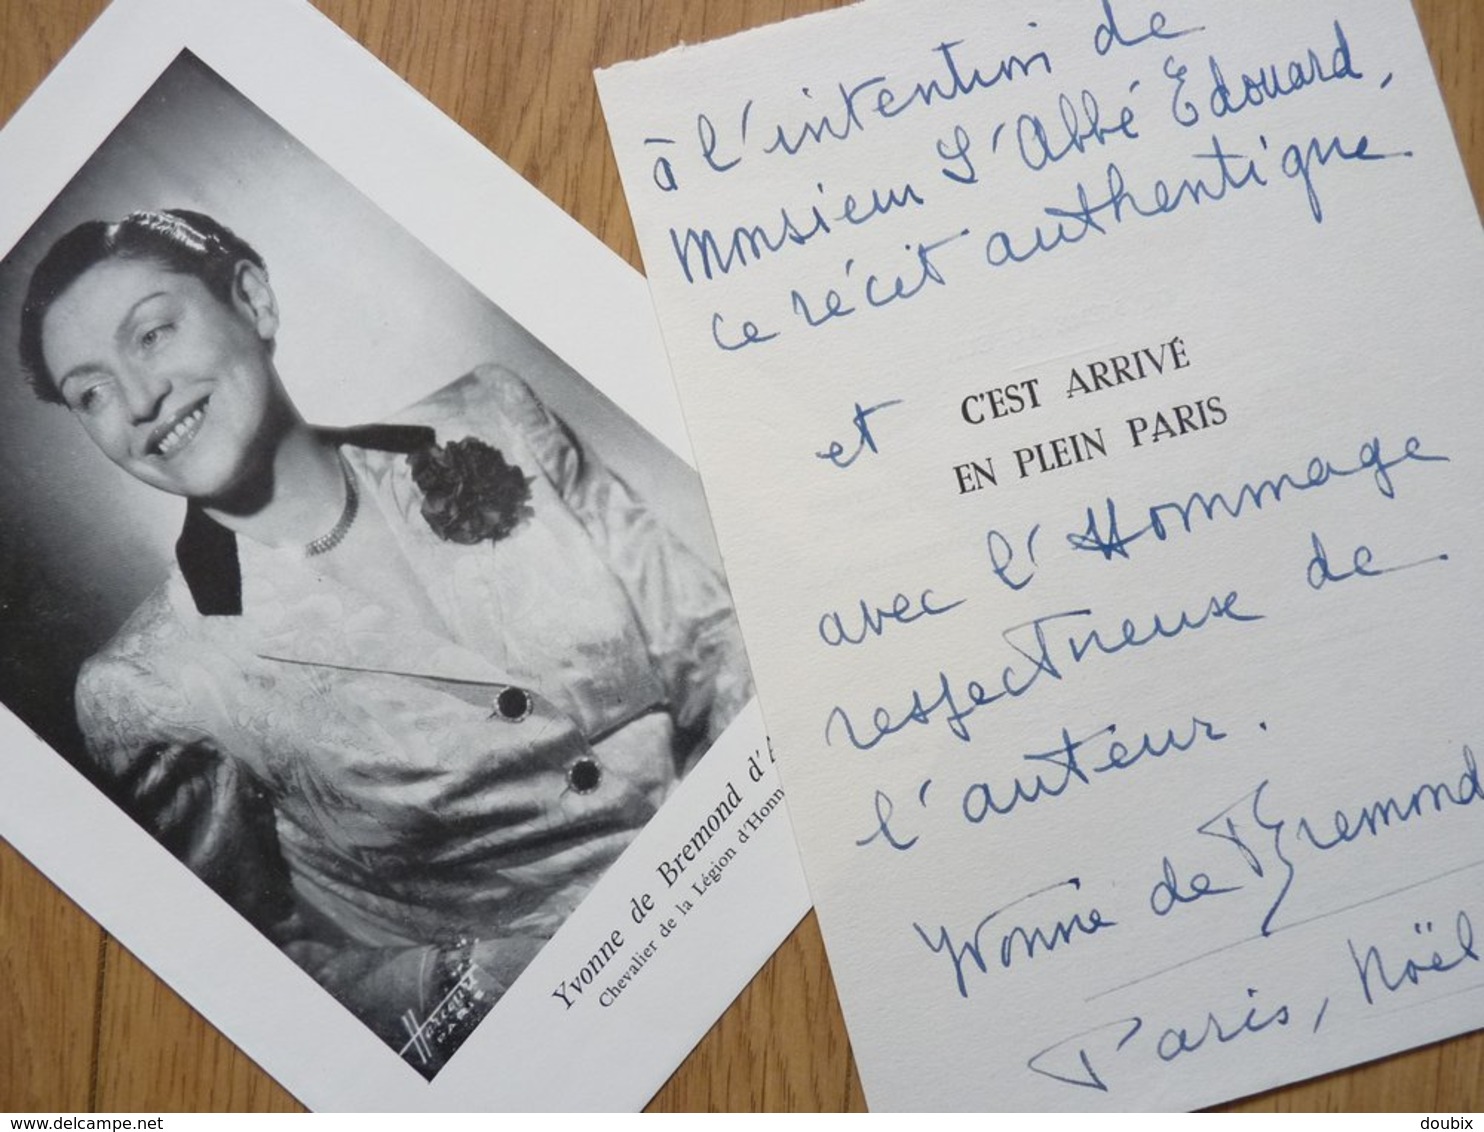 à l'intention de
Monsieur L'Abbé Edouard,
ce récit authentique
C'EST ARRIVÉ
EN PLEIN PARIS
et
avec l'Hommage
respectueuse de
l'auteur.
Yvonne de Bremond
Paris, Noël
Yvonne de Bremond d'A
Chevalier de la Légion d'Honn
Harcourt
PARIS
© delcampe.net
doubix